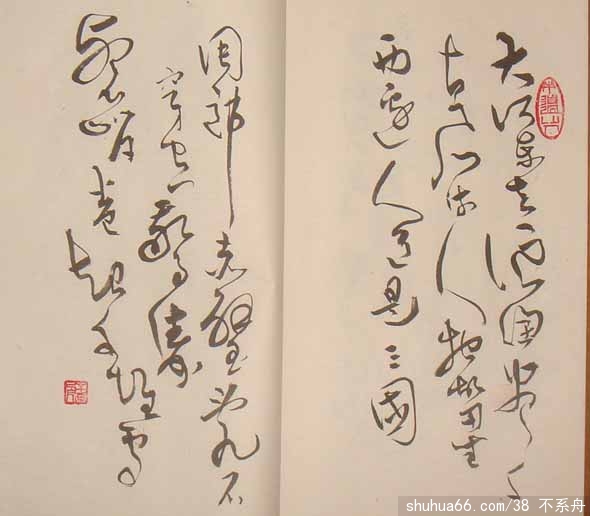 大江东去浪淘尽千
古风流人物故垒
西边人道是三國
周郎赤壁乱石
穿空惊涛
裂岸卷起千堆雪
shuhua66.com/38 不系舟